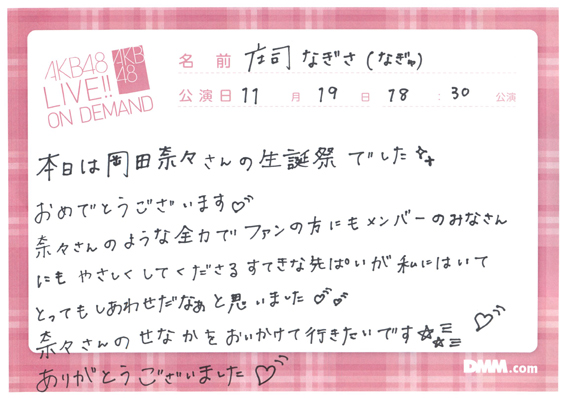 AKB48
LIVE!!
ON DEMAND
AKB
48
名前 庄司なぎさ(なぎゅ)
公演日 11月19日 18:30 公演
本日は岡田奈々さんの生誕祭でした
おめでとうございます♡
奈々さんのような全力でファンの方にもメンバーのみなさん
にもやさしくしてくださるすてきな先ぱいが私にはいて
とってもしあわせだなぁと思いました♡♡
奈々さんのせなかをおいかけて行きたいです☆☆
ありがとうございました♡
DMM.com